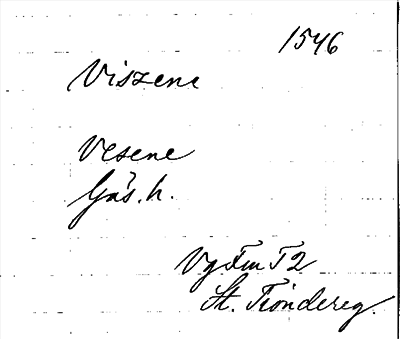 1546
Viszene
Vesene
Gäs. h.
Vg Fm T2
St. Tiondereg.